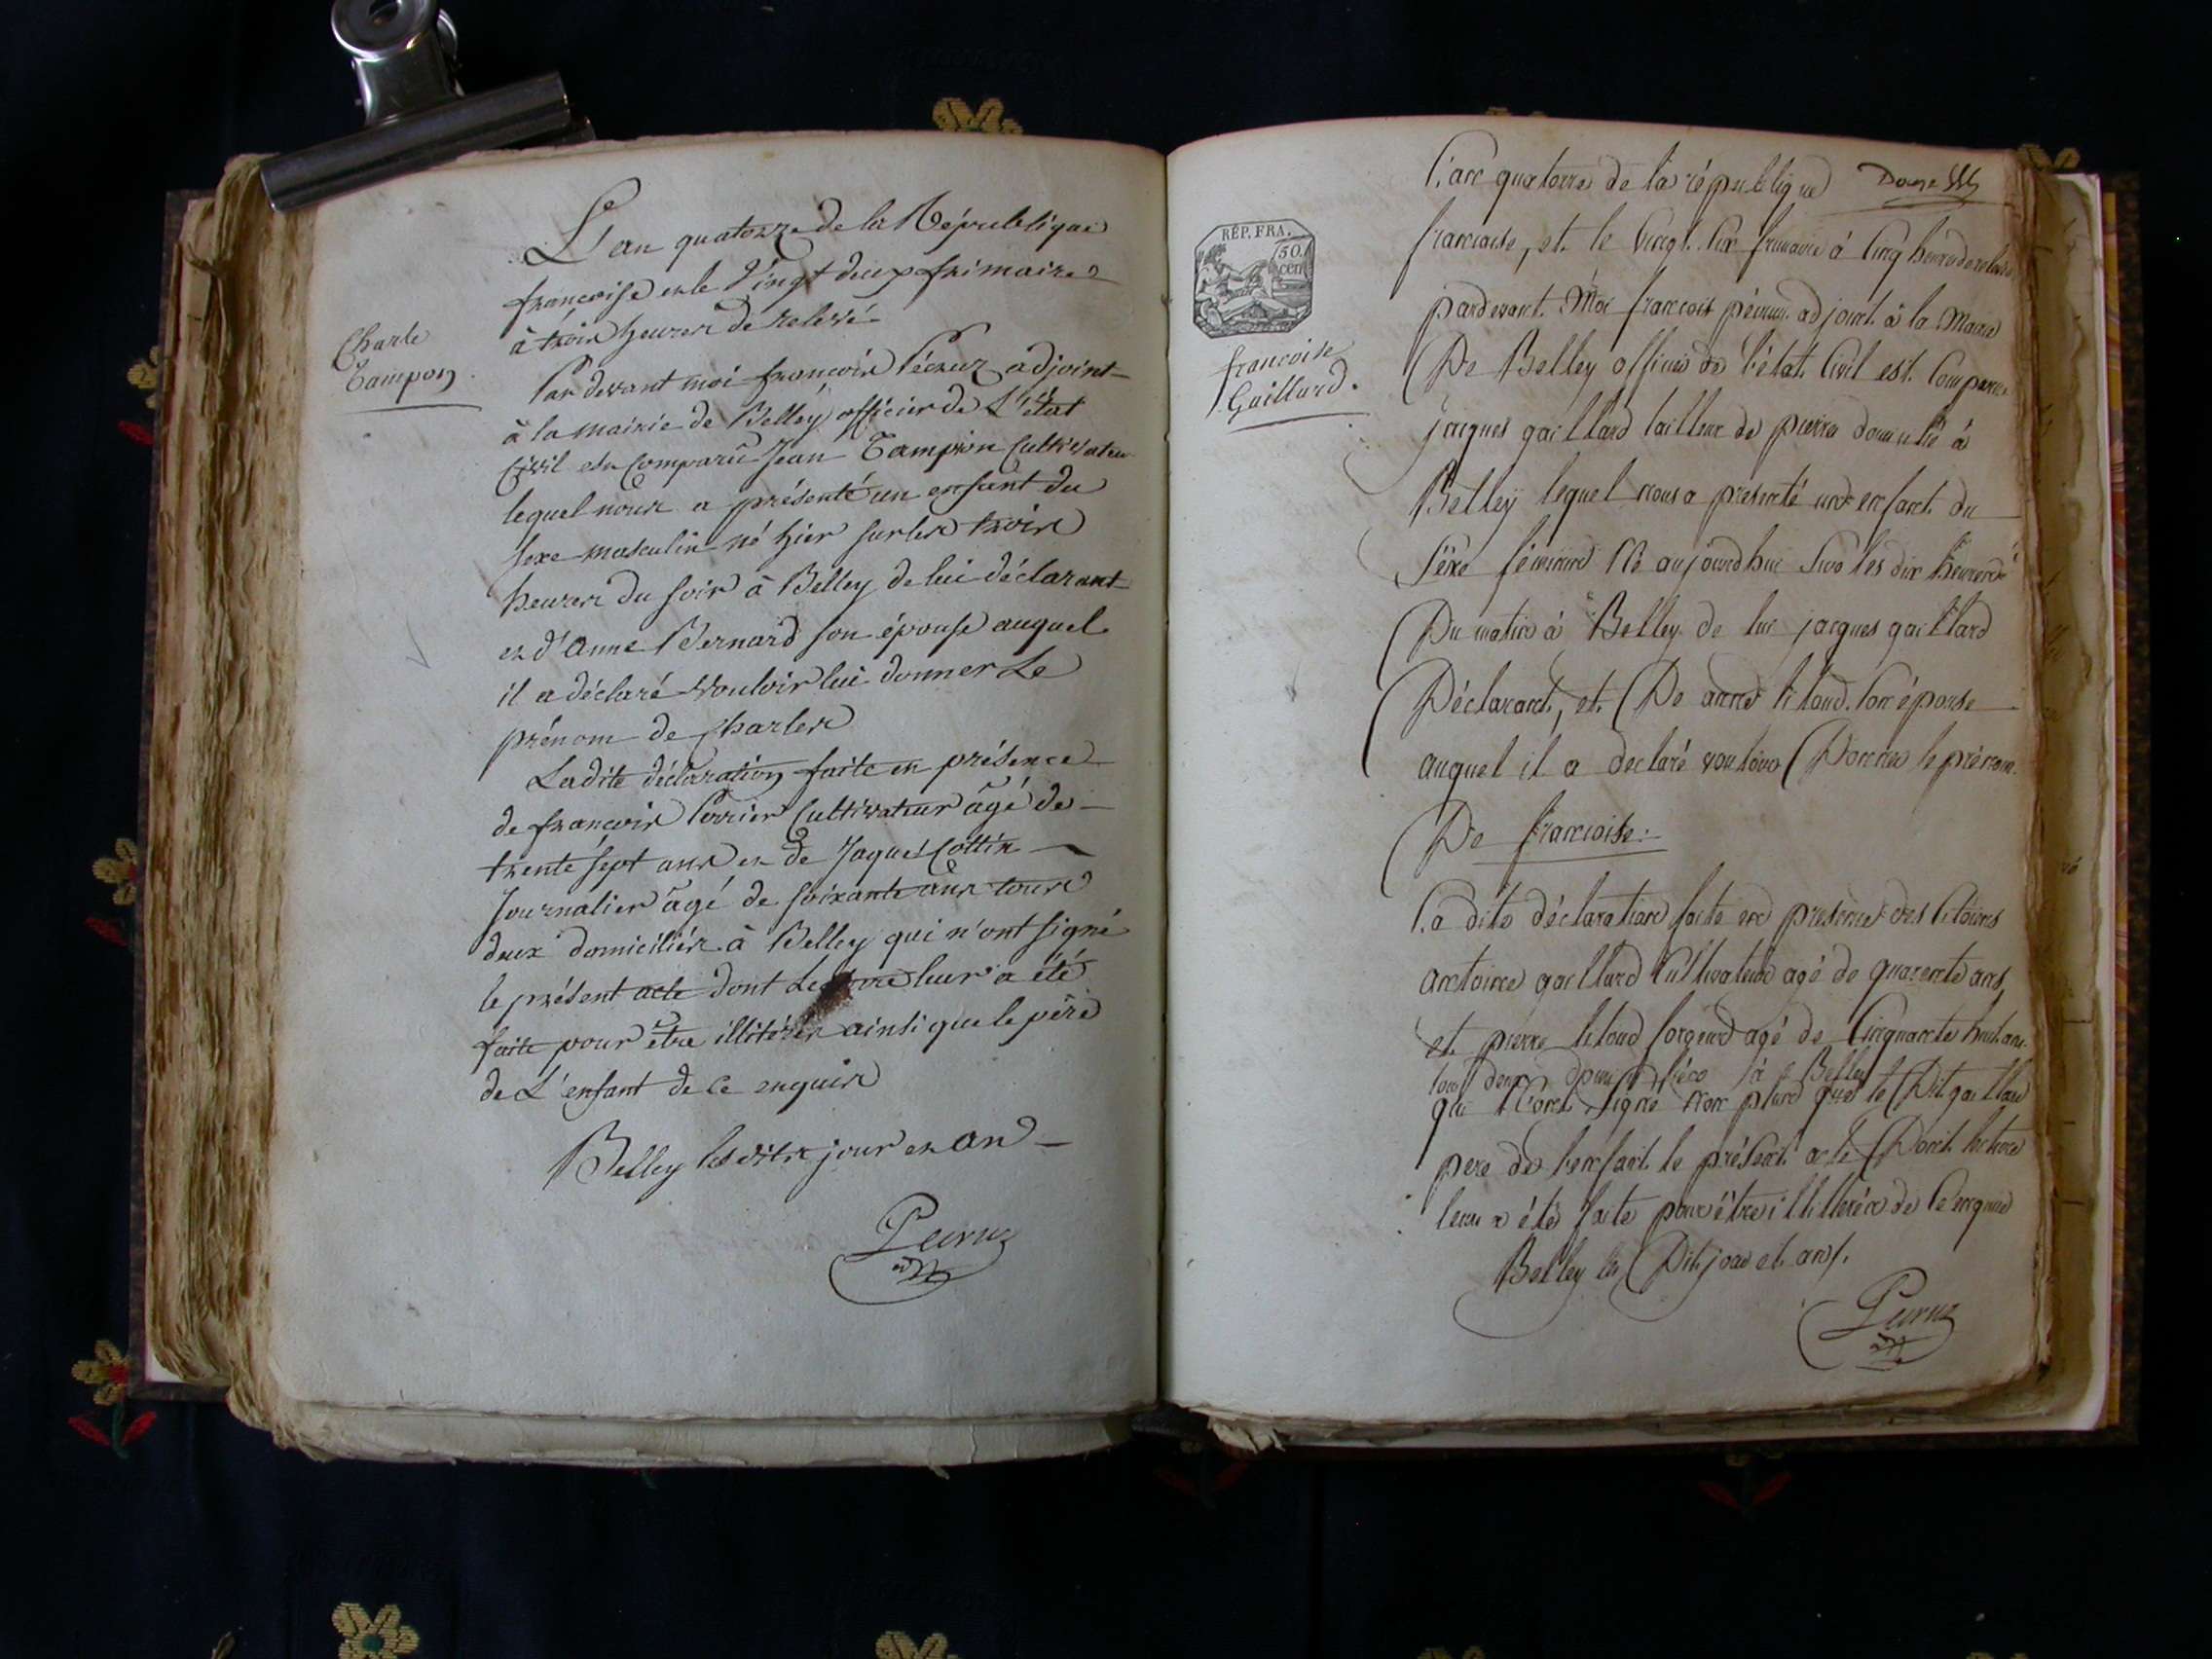 Charle
Tampon
L'an quatorze de la République
françoise et le Vingt deux frimaire
à trois heures de relevé
Par devant moi françois Pécruz adjoint
à la mairie de Belley officier de L'état
Civil est Comparû Jean Tampon Cultivateur
lequel nous a présenté un enfant du
sexe masculin né hier sur les trois
heures du soir à Belley de lui déclarant
et d'Anne Bernard son épouse auquel
il a déclaré vouloir lui donner Le
prénom de Charles
Ladite déclaration faite en présence
de françois Perrier Cultivateur âgé de
trente sept ans et de Jaques Cottin
Journalier âgé de soixante ans tous
deux domiciliés à Belley qui n'ont signé
le présent acte dont Lecture leur a été
faite pour être illitérés ainsi que le père
de L'enfant de ce enquis
Belley les dits jour et an
REP. FRA.
50
cent
francoise
Gaillard.
L'an quatorze de la république
francaise, et le vingt six frimaire à Cinq heures de relevé
pardevant Moi francois adjoint à la Mairie
De Belley officier de l'état Civil est Comparu
jacques gaillard tailleur de pierres domicilié à
Belley lequel nous a présenté un enfant du
Sexe féminin Né aujourdhui Sur les dix heures
Du matin à Belley de lui jacques gaillard
Déclarant, et De anne son épouse
auquel il a declaré vouloir Donner le prénom
De francoise.
La dite déclaration faite en présence des citoiens
antoine gaillard Cultivateur agé de quarente ans,
et pierre agé de Cinquante huit ans
tous deux domiciliés à Belley
qui N'ont Signé non plus que le Dit gaillard
pere de l'enfant le présent acte Dont lecture
leur a été faite pour être illitterés de ce enquis
Belley les Dit jour et an.